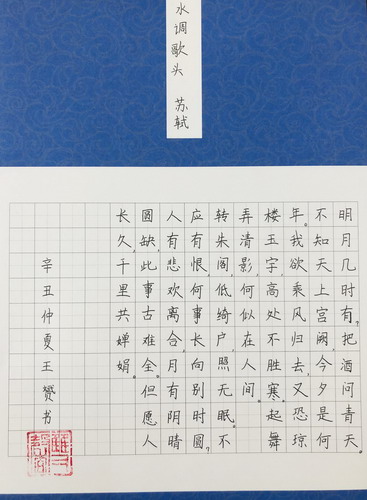 水调歌头 苏轼
明月几时有？把酒问青天。
不知天上宫阙，今夕是何
年。我欲乘风归去，又恐琼
楼玉宇高处不胜寒。起舞
弄清影，何似在人间。
转朱阁，低绮户，照无眠。不
应有恨，何事长向别时圆？
人有悲欢离合，月有阴晴
圆缺，此事古难全。但愿人
长久，千里共婵娟。
辛丑仲夏王书